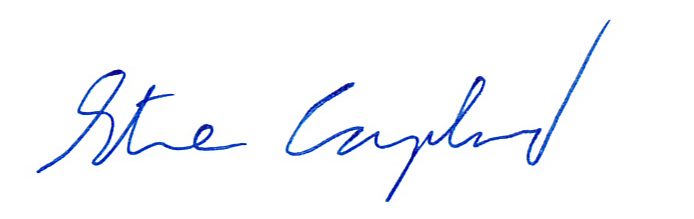 Steve Copland